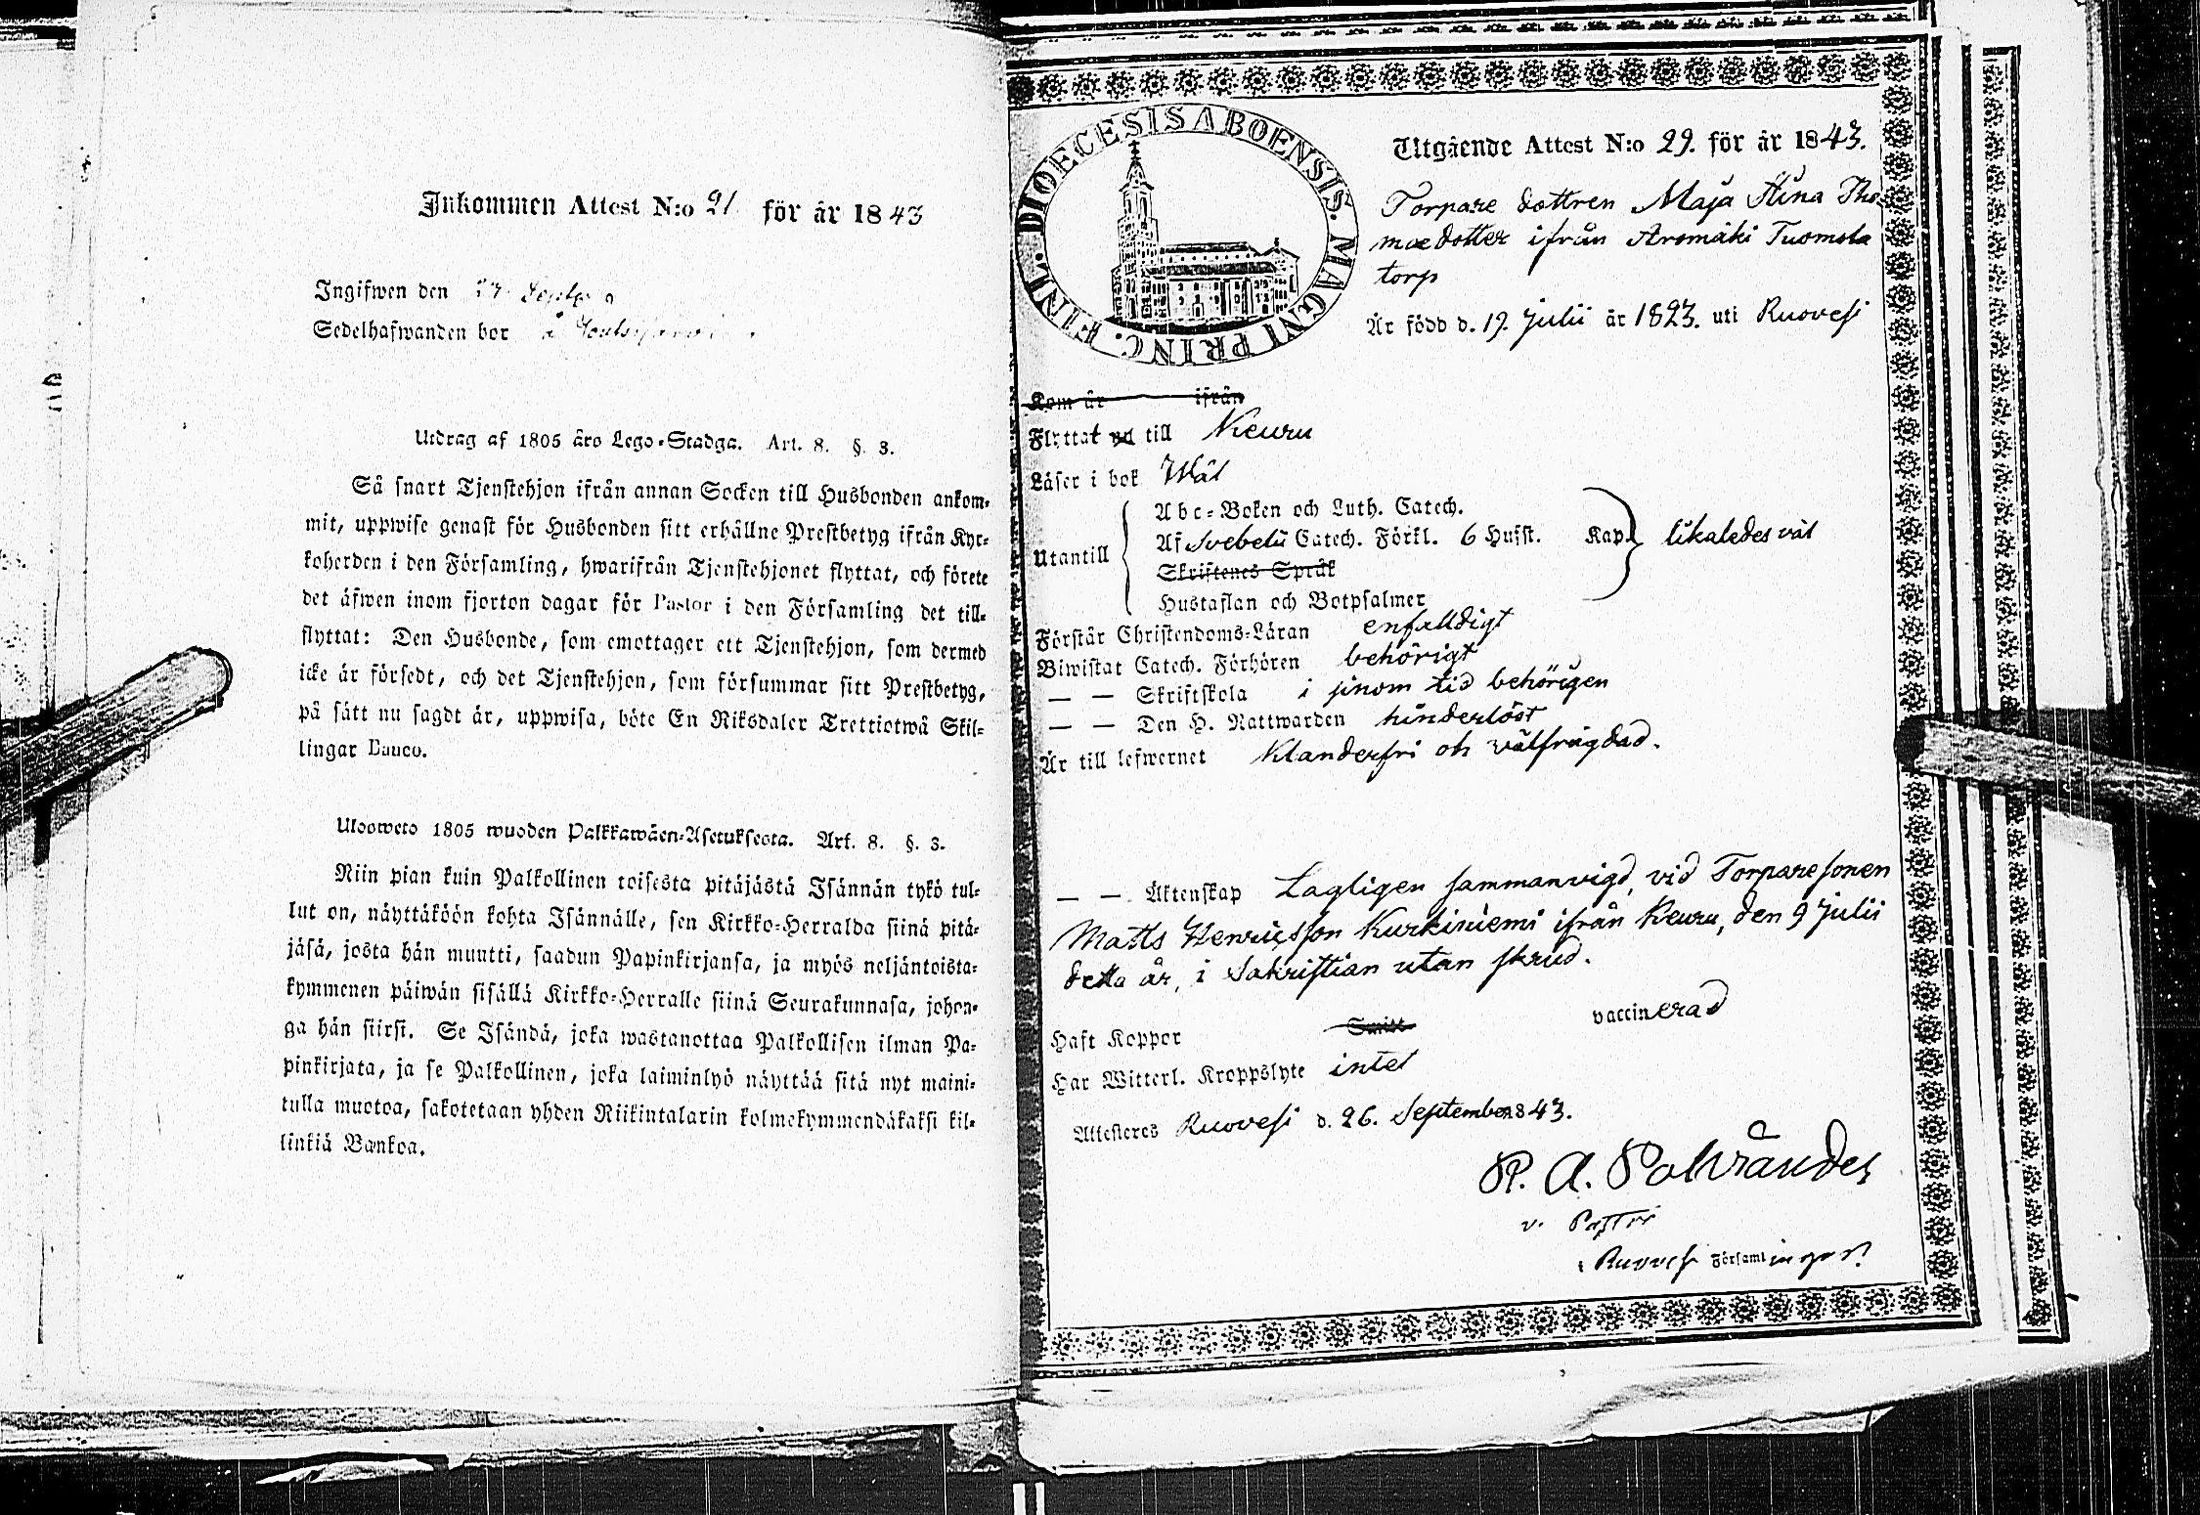 Inkommen Attest N:o 21 för år 1843
Ingifwen den
Sedelhafwanden bor å
Utdrag af 1805 års Lego-Stadga. Art. 8. §. 3.
Så snart Tjenstehjon ifrån annan Socken till Husbonden ankom-
mit, uppwise genast för Husbonden sitt erhållne Prestbetyg ifrån Kyr-
koherden i den Församling, hwarifrån Tjenstehjonet flyttat, och förete
det äfwen inom fjorton dagar för Pastor i den Församling det till-
flyttat: Den Husbonde, som emottager ett Tjenstehjon, som dermed
icke är försedt, och det Tjenstehjon, som försummar sitt Prestbetyg,
på sätt nu sagdt är, uppwisa, böte En Riksdaler Trettiotwå Skil-
lingar Banco.
Ulosweto 1805 wuoden Palkkawäen-Asetuksesta. Art. 8. §. 3.
Niin pian kuin Palkollinen toisesta pitäjästä Isännän tykö tul-
lut on, näyttäköön kohta Isännälle, sen Kirkko-Herralda siinä pitä-
jäsä, josta hän muutti, saadun Papinkirjansa, ja myös neljäntoista-
kymmenen päiwän sisällä Kirkko-Herralle siinä Seurakunnasa, johon-
ga hän siirsi. Se Isändä, joka wastanottaa Palkollisen ilman Pa-
pinkirjata, ja se Palkollinen, joka laiminlyö näyttää sitä nyt maini-
tulla muotoa, sakotetaan yhden Riikintalarin kolmekymmendäkaksi kil-
linkiä Bankoa.
DIOECESIS ABOENSIS. MAGNI PRINC. FINL.
Utgående Attest N:o 29. för år 1843.
Torpare dottren Maja Stina Tho-
mæ dotter ifrån Aromäki Tuomola
torp
Är född d. 19. Julii år 1823. uti Ruovesi
Kom år ifrån
Flyttat till Keuru
Läser i bok Wäl
Utantill
Abc-Boken och Luth. Catech.
Af Svebelii Catech. Förkl. 6 Hufst. Kap. likaledes väl
Skriftenes Språk
Hustaflan och Botpsalmer
Förstår Christendoms-Läran enfalldigt
Biwistat Catech. Förhören behörigt
— — Skriftskola i sinom tid behörigen
— — Den H. Nattwarden hinderlöst
Är till lefwernet Klanderfri och välfrägdad.
— — Äktenskap Lagligen sammanvigd, vid Torparesonen
Matts Henricsson Kurkiniemi ifrån Keuru, den 9 Julii
detta år, i Sakristian utan skrud.
Haft Koppor vaccinerad
Har Witterl. Kroppslyte intet
Attesteres Ruovesi d. 26. September 1843.
v. Pastor
i Ruovesi Församlingar